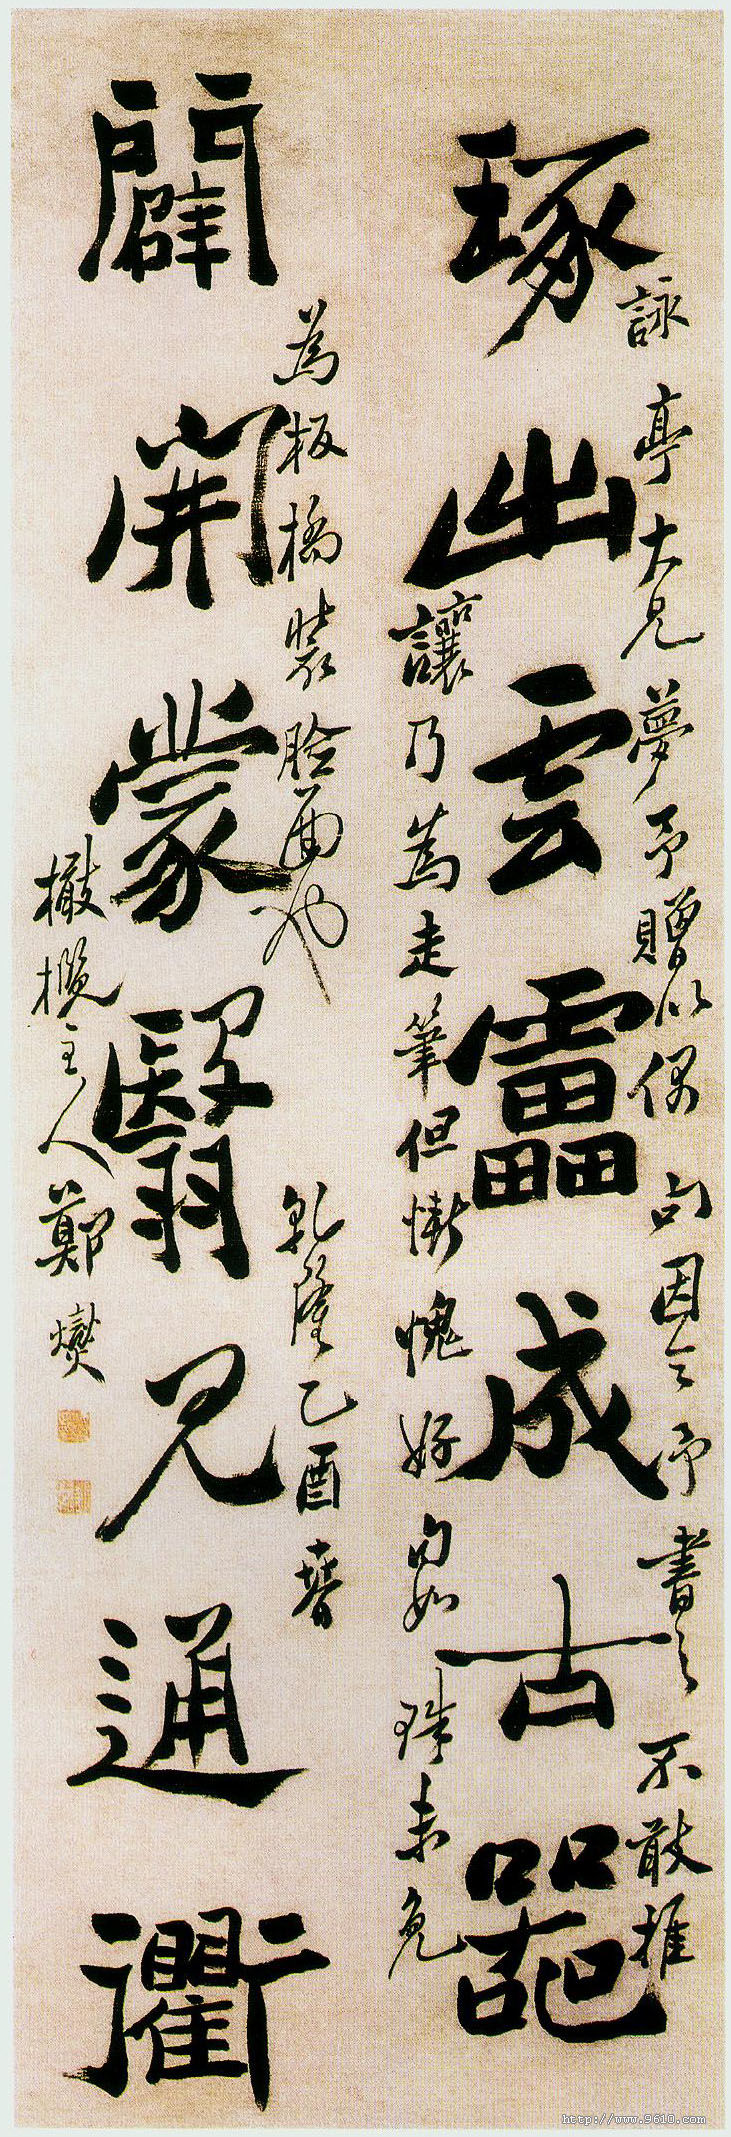 琢出雲靁成古器
詠亭大兄夢予贈以偶句因令予書之不敢推
讓乃為走筆但慚愧好句如珠未免
闢開蒙翳見通衢
為板橋裝臉面也
乾隆乙酉春
橄欖主人鄭燮
http://www.9610.com